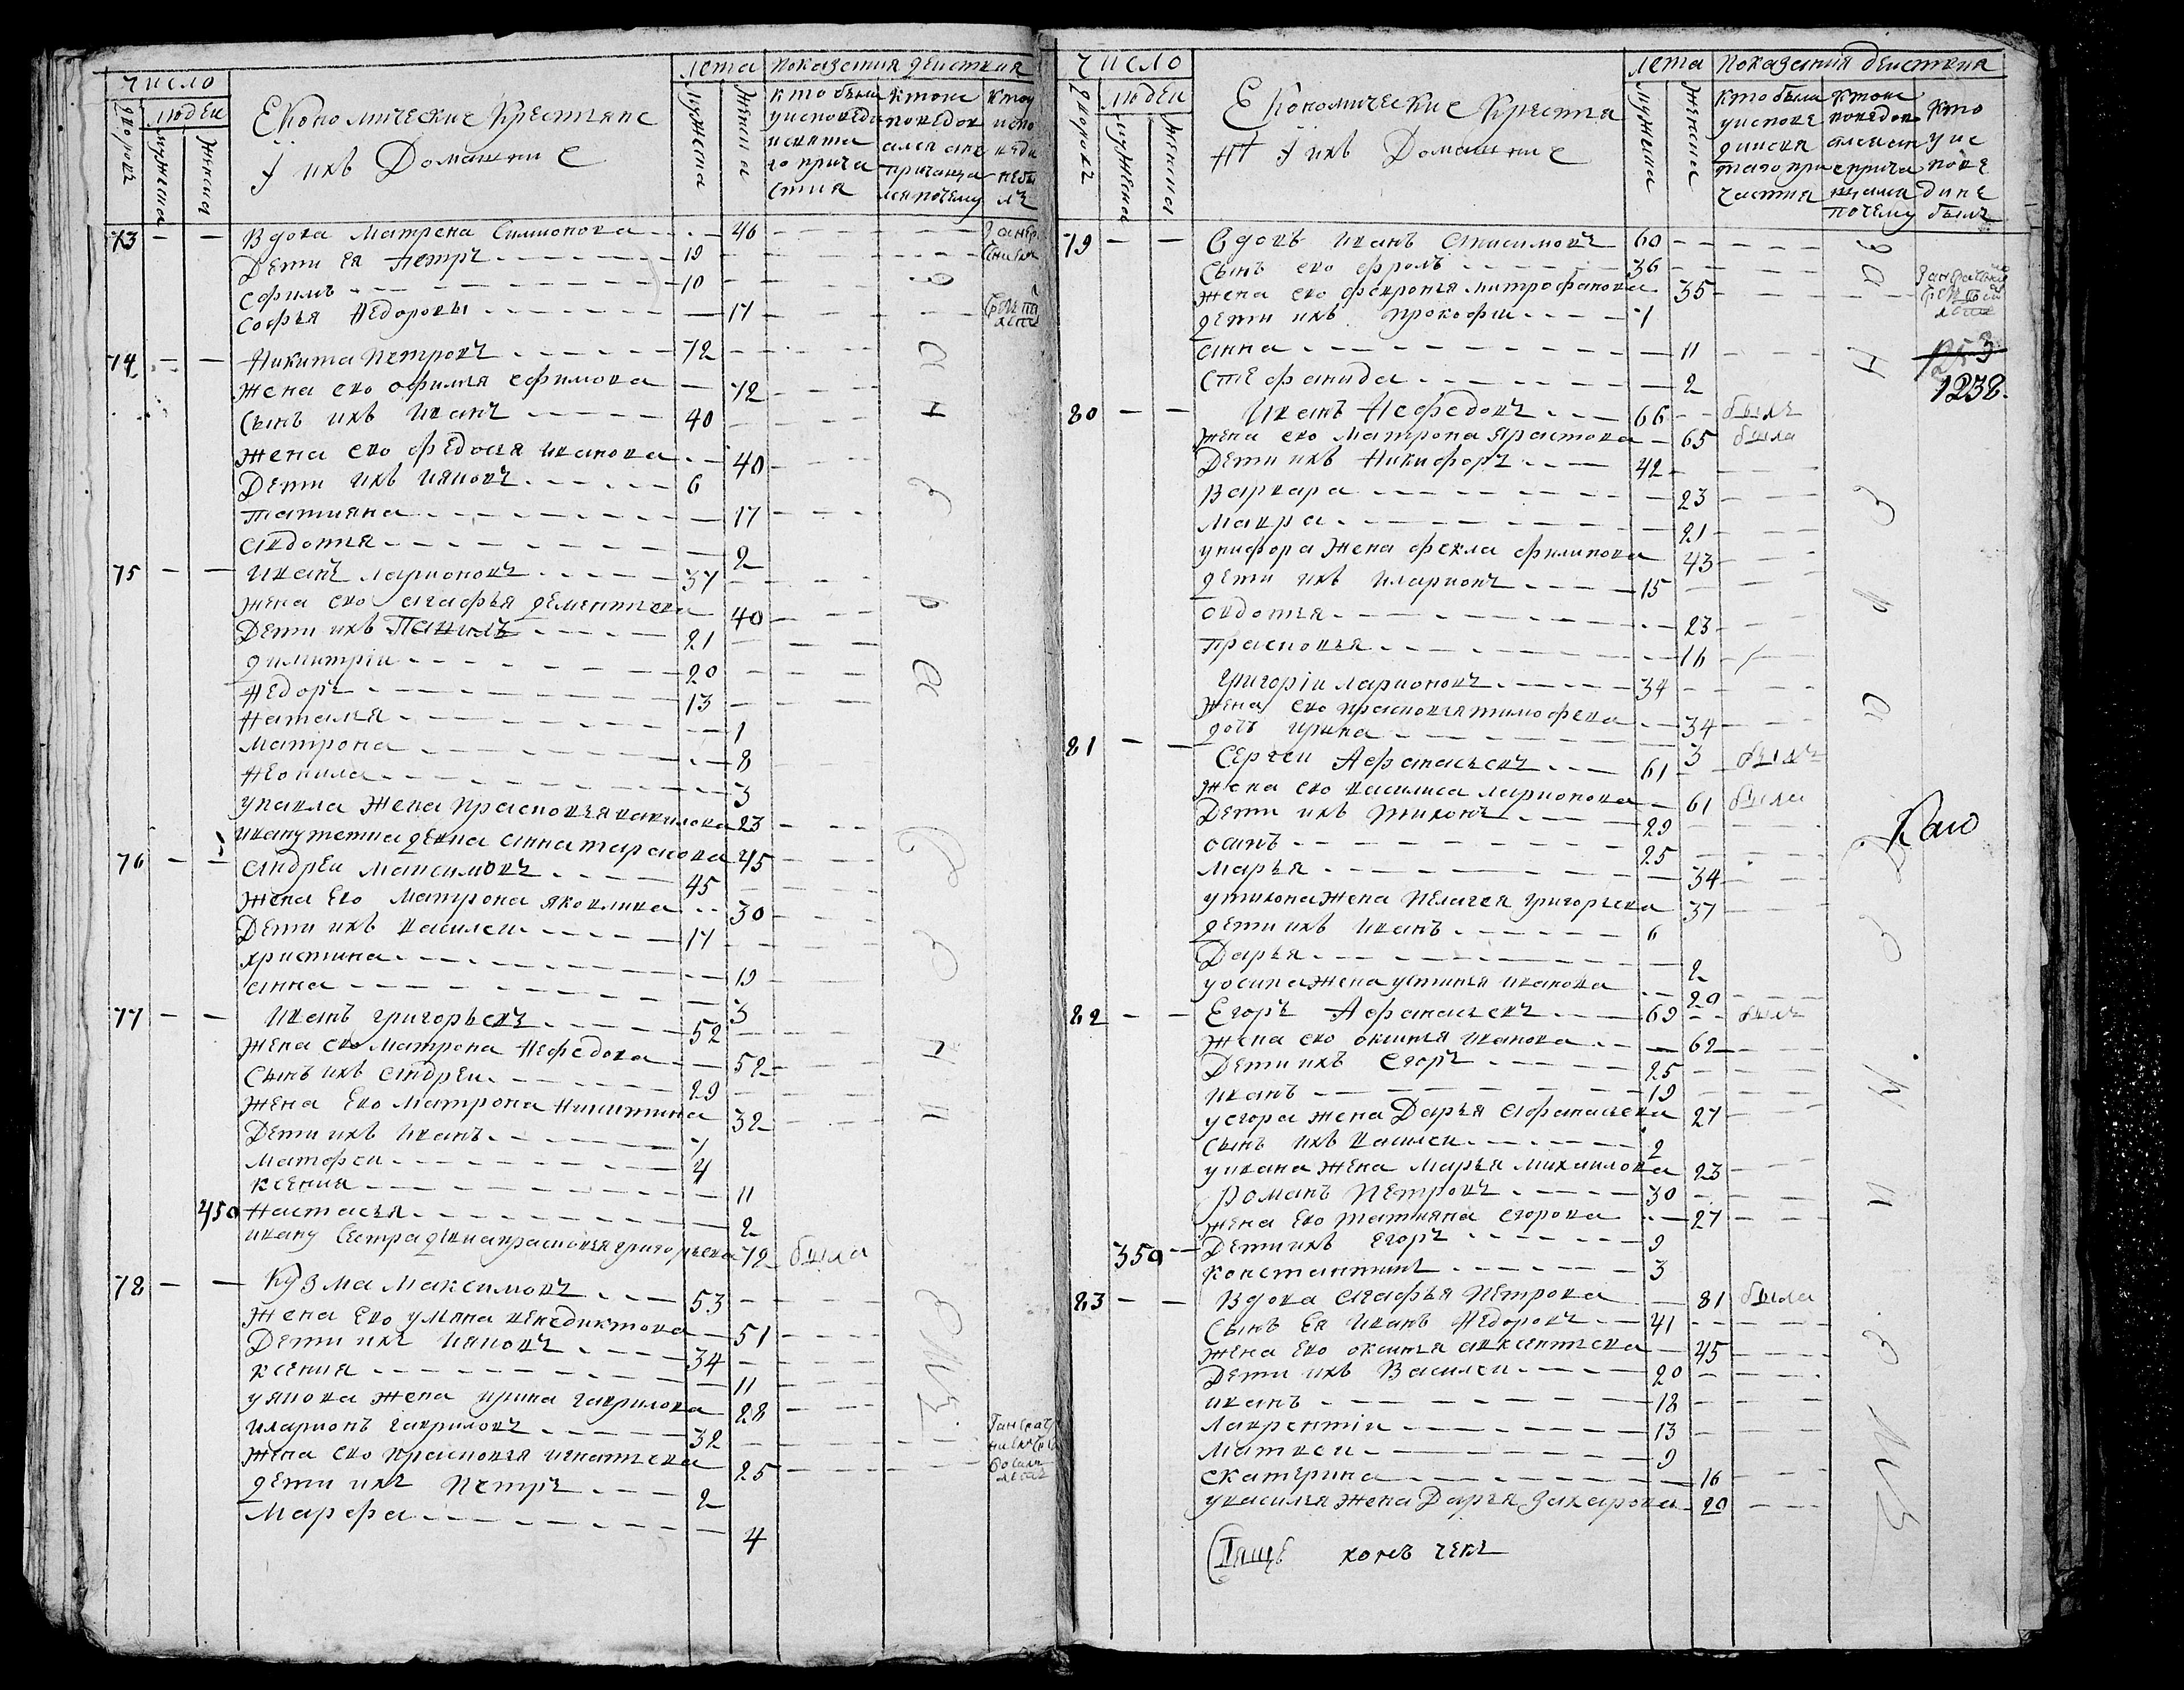 число
дворовъ
людеи
мужеска
женска
Економические крестяне
И ихъ Домашние
лета
мужеска
женска
показания деиствия
кто былъ
у исповеди
и свята
го прича
стия
73 — — Вдова Матрена Симионова — 46
Дети ея Петръ 19
Ефимъ 10
Софья Федоровы — 17
74 — — Никита Петровъ 72
жена ево Офимия Ефимова — 72
Сынъ ихъ Иванъ 40
жена ево федосия иванова — 40
Дети ихъ Ияковъ 6
татияна — 17
авдотия — 2
75 — — Иванъ ларионовъ 37
жена ево агафья дементиева 40
Дети ихъ Павилъ 21
димитріи 20
Федоръ 13
Наталия — 1
матрона — 8
Неонила — 3
у павла жена прасковья вавилова 23
ивану тетка девка анна тарасова 45
76 — — андреи максимовъ 45
жена Ево матрона яковлива 30
Дети ихъ василеи 17
христина — 19
анна — 3
77 — — Иванъ григорьевъ 52
жена ево матрона Нефедова — 52
Сынъ ихъ андреи 29
жена Ево матрона Никитина 32
Дети ихъ иванъ 7
матфеи 4
ксения — 11
450 Настасья — 2
ивану Сестра девка прасковья григорьева 72 была
78 — — Кузма максимовъ 53
жена Ево улияна венедиктова — 51
Дети ихъ ияковъ 34
ксения — 11
у якова жена ирина гаврилова 28
иларионъ гавриловъ 32
жена ево прасковья игнатиева 25
дети ихъ Петръ 2
Марфа — 4
число
дворовъ
людеи
мужеска
женска
Економические Крестия
не И ихъ Домашние
лета
мужеска
женска
показания деиствия
кто
у ис
пове
ди не
былъ
79 — — Вдовъ иванъ анисимовъ 60
Сынъ ево фролъ 36
жена ево феврония митрофанова 35
дети ихъ прокофии 7
анна — 11
Стефанида — 2
1238.
80 — — Иванъ Нефедовъ 66 былъ
жена ево матрона яристова — 65 была
Дети ихъ Никифоръ 42
Варвара — 23
мавра — 21
у никифора жена фекла филипова 43
дети ихъ иларионъ 15
авдотья — 23
прасковья — 16
григоріи ларионовъ 34
жена ево прасковья тимофеева — 34
дочь ирина — 3
81 — — Сергеи Афанасьевъ 61 былъ
жена ево василиса ларионова — 61 была
Дети ихъ тихонъ 29
осипъ 25
марья — 34
у тихона жена пелагея григорьева 37
дети ихъ иванъ 6
Дарья — 2
у осипа жена устинья иванова — 29
82 — — Егоръ Афанасьевъ 69 былъ
жена ево аксинья иванова — 62
Дети ихъ Егоръ 25
иванъ 19
у егора жена Дарья афанасьева 27
сынъ ихъ василеи 2
у ивана жена марья михаилова 23
романъ Петровъ 30
жена Ево татияна егорова — 27
350 — Дети ихъ Егоръ 9
константинъ 3
83 — — Вдова агафья Петрова — 81 была
Сынъ Ея иванъ Федоровъ 41
жена Ево аксинья авксентьева — 45
Дети ихъ Василеи 20
иванъ 18
лаврентіи 13
матвеи 9
екатерина — 16
у василья жена Дарья захарова 20